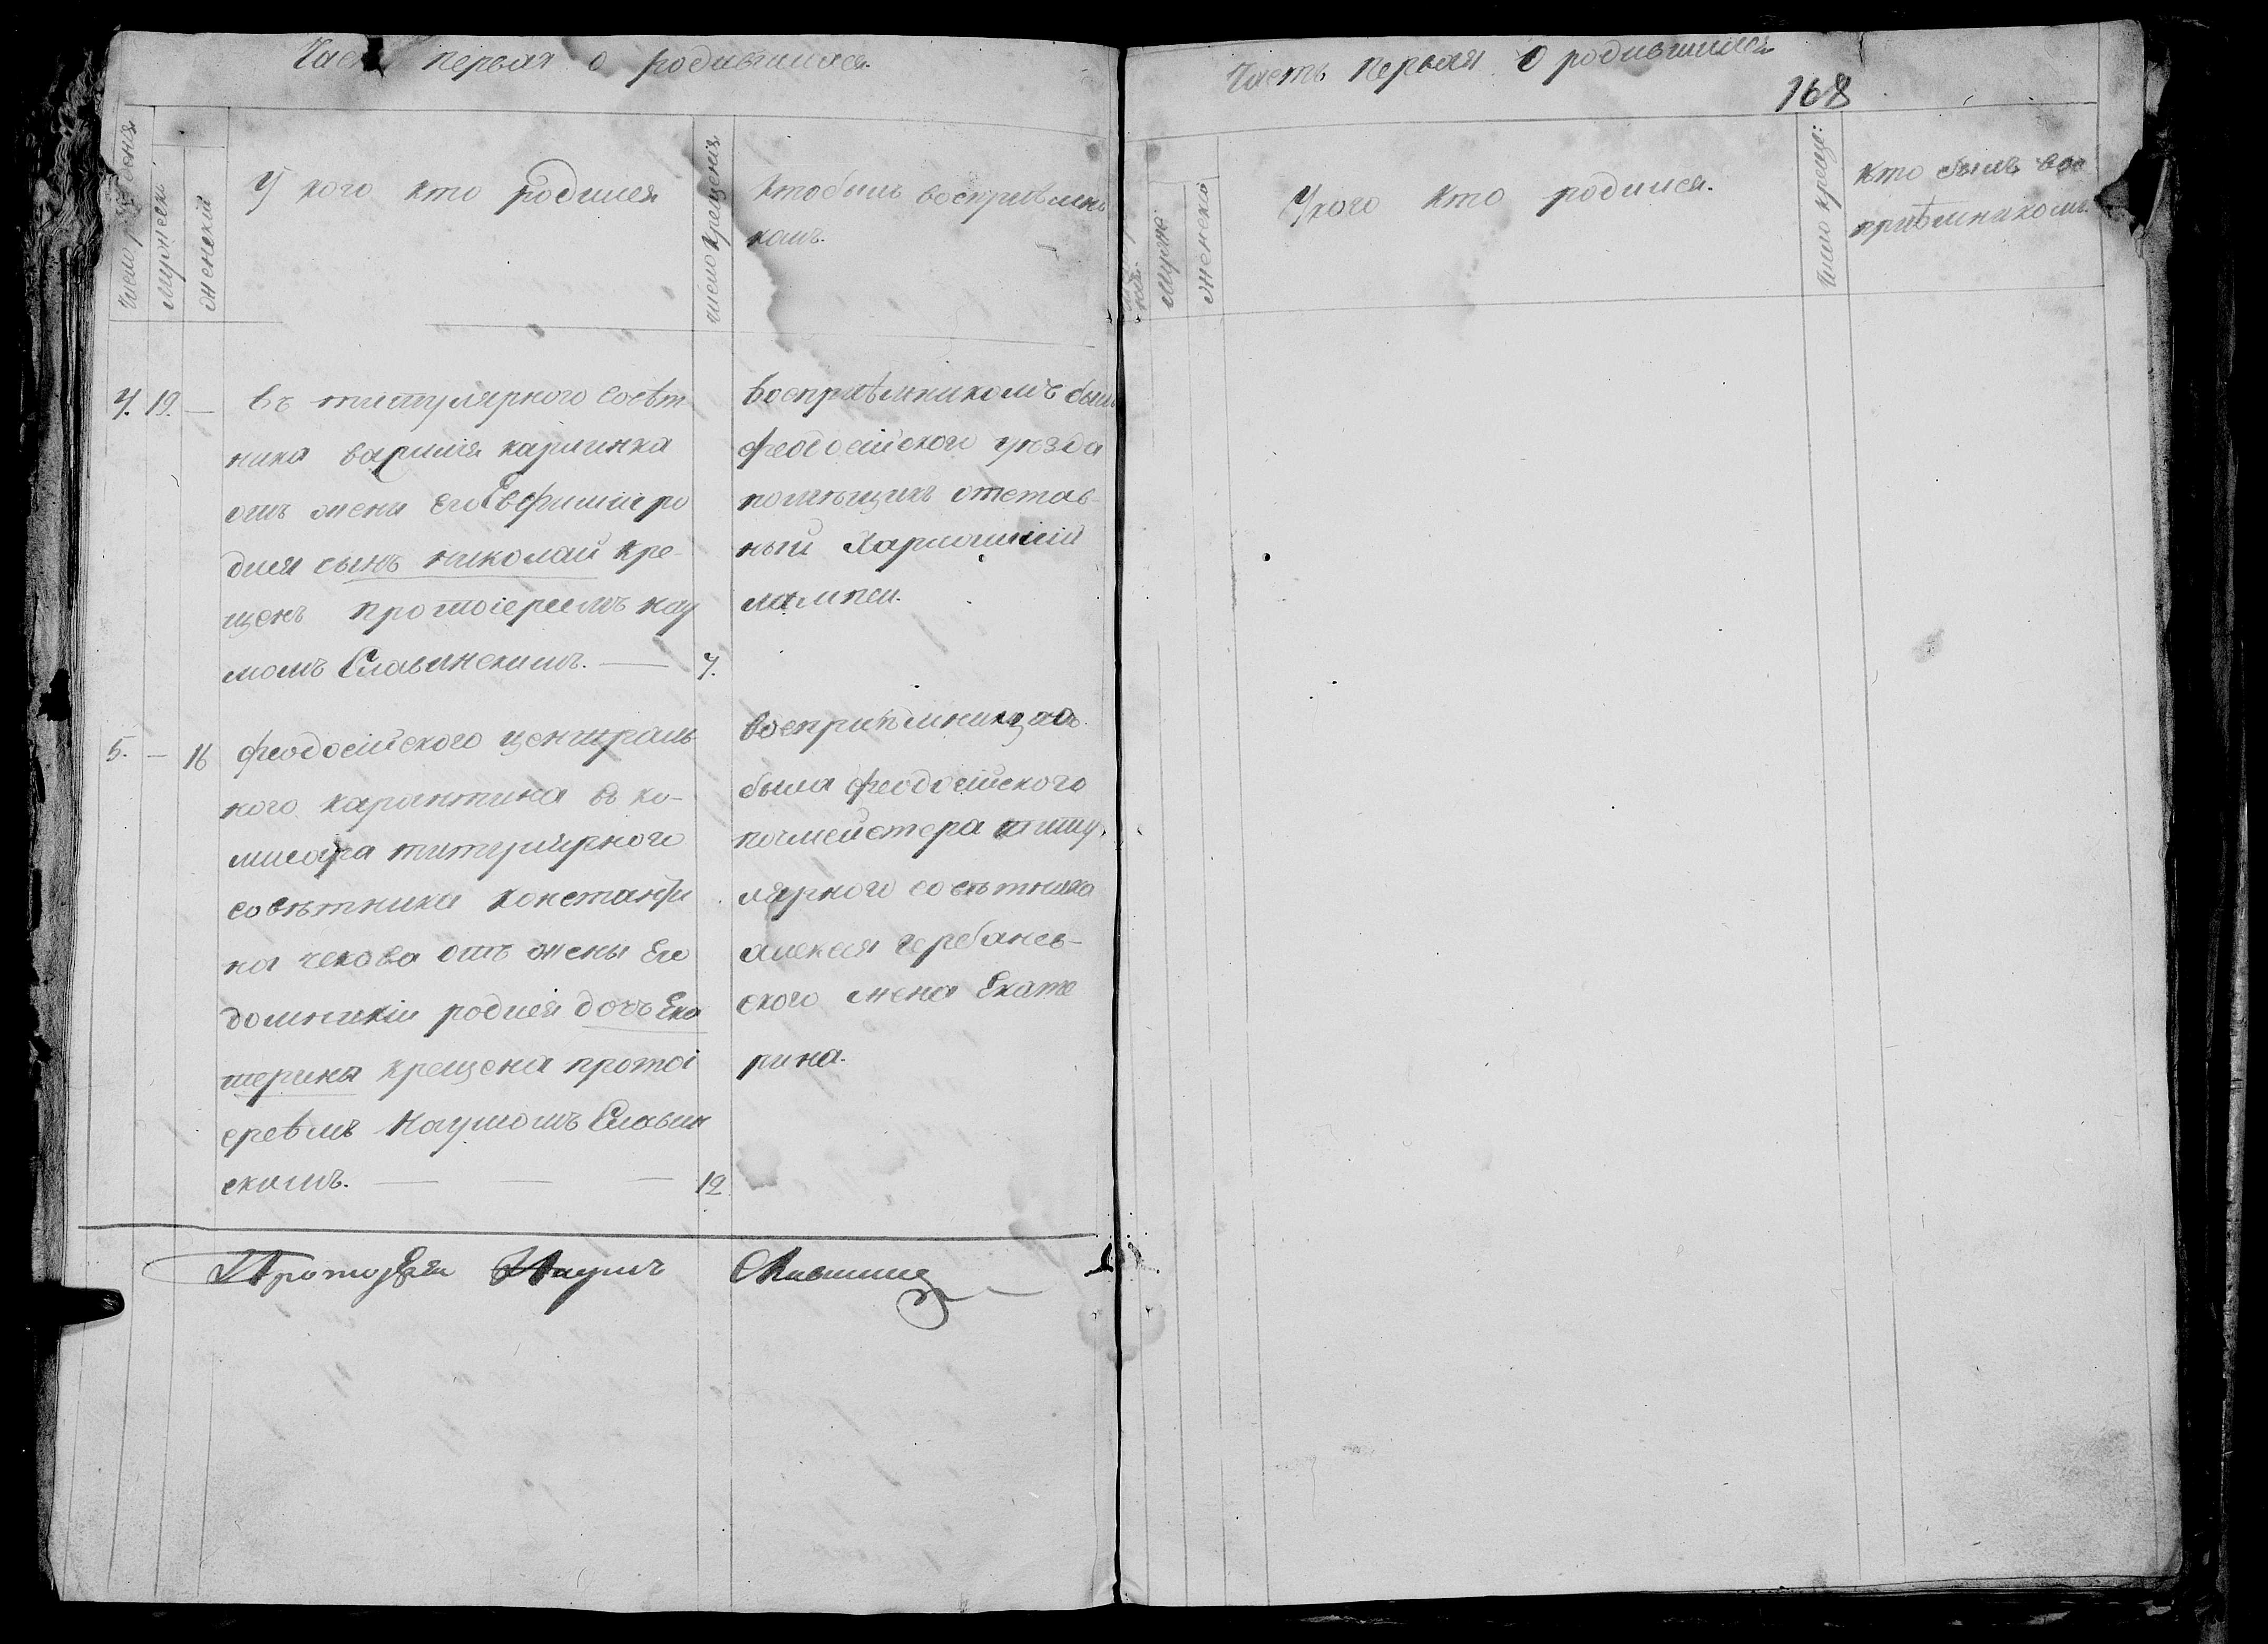 Часть первая о родившихся.
Число рожденія
Мужескій
Женскій
У кого кто родился
число крещенія
Кто былъ воспріѣмни
комъ.
4. 19. — въ титулярного совѣт
ника карлинка
отъ жены его Евфиміи ро
дился сынъ николай кре-
щенъ протоіереемъ нау
момъ Славинскимъ. — 7.
воспріѣмникомъ былъ
феодосійского уѣзда
помѣщикъ отстав-
ный Харлампій
лампси.
5. — 16 феодосійского централь
ного карантина въ ко-
мисара титулярного
совѣтника константи
на чекова отъ жены Его
домникіи родися дочь Ека
терина крещена протоі
ереѣмъ Наумомъ Славин
скимъ. — — — 12
воспріѣмницею
была феодосійского
почмейстера титу
лярного совѣтника
алексея
ского жена Екате
рина.
Протоіерей Наумъ Славинскій
Часть первая о родившихся
168
Муже:
Женскій
У кого кто родился.
Число крещ:
кто былъ вос
пріѣмникомъ.